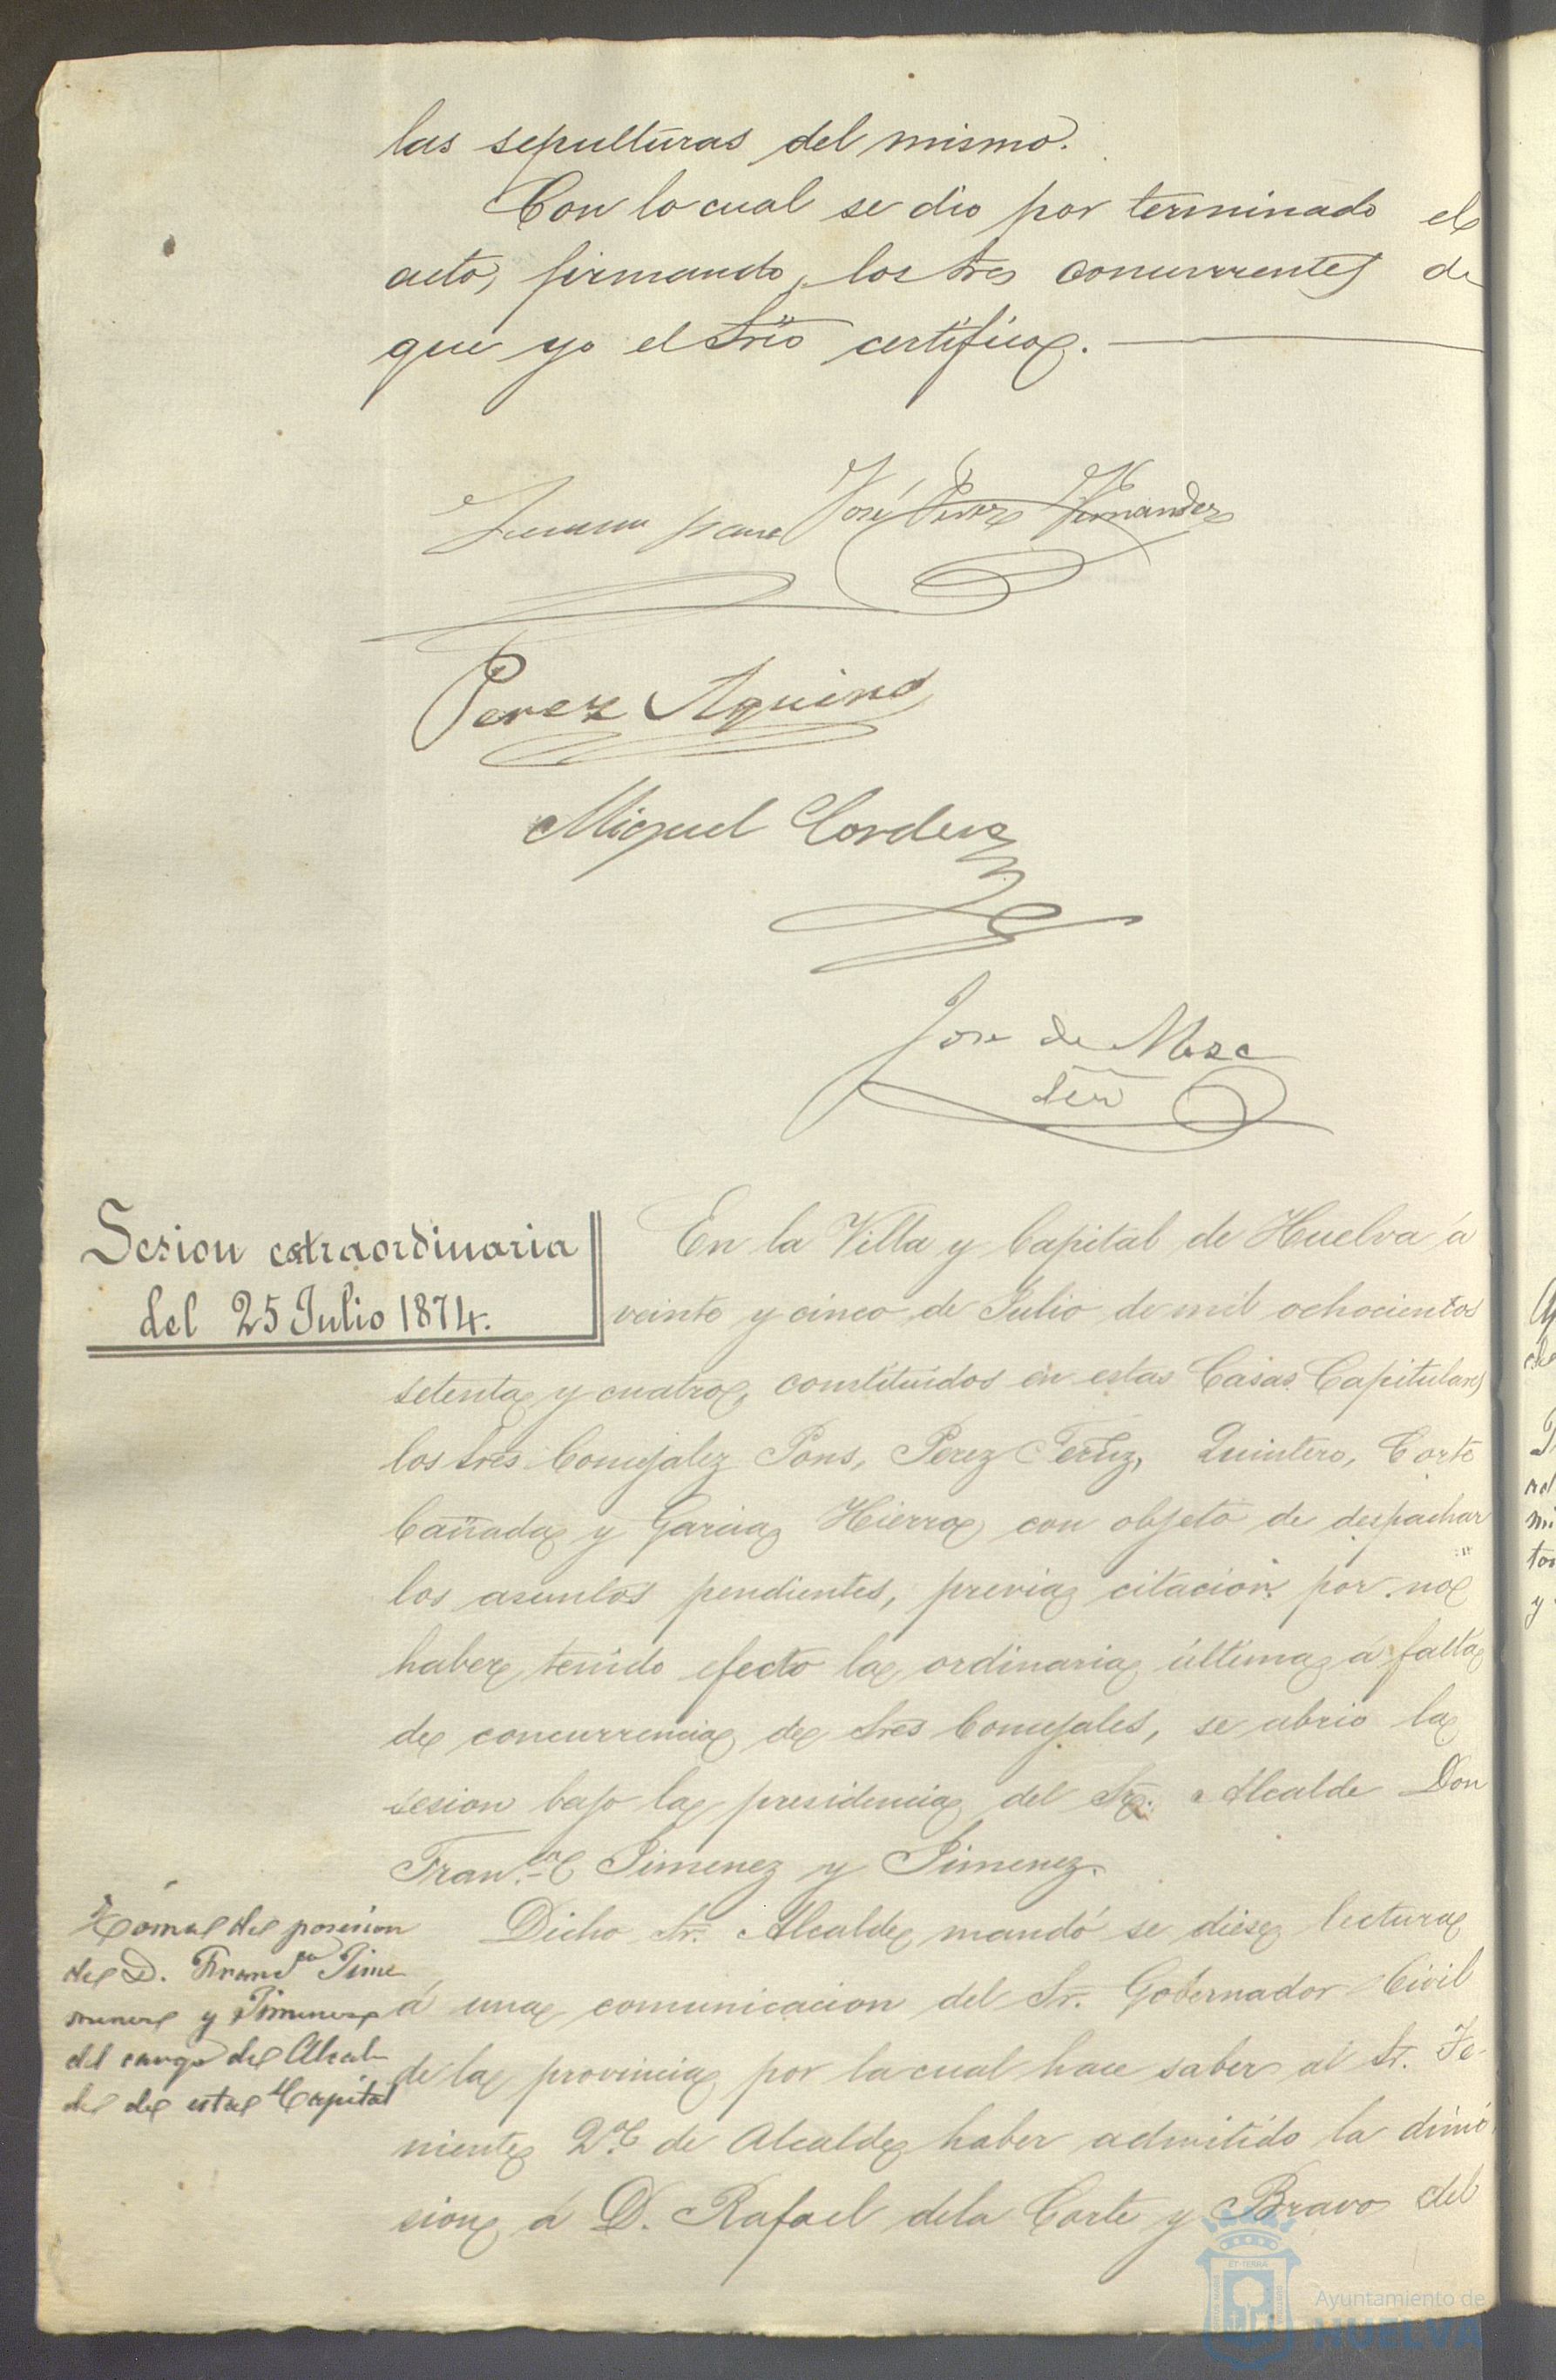 las sepulturas del mismo.
Con lo cual se dio por terminado el
acto, firmando los Sres concurrentes de
que yo el Srio certifico.
José Perez Fernandez
Perez Aquino
Miguel Cordero
Jose de Mesa
Srio
Sesion estraordinaria
del 25 Julio 1874.
En la Villa y Capital de Huelva á
veinte y cinco de Julio de mil ochocientos
setenta y cuatro, constituidos en estas Casas Capitulares
los Sres Concejalez Pons, Perez Fernz, Quintero, Corte
Cañada y Garcia Hierro, con objeto de despachar
los asuntos pendientes, previa citacion por no
haber tenido efecto la ordinaria última á falta
de concurrencia de Sres Concejales, se abrio la
sesion bajo la presidencia del Sr. Alcalde Don
Fran.co Jimenez y Jimenez.
Toma de posesion
de D. Francco Jime
menez y Jimenez
del cargo de Alcal
de de esta Capital
Dicho Sr. Alcalde mandó se diese lectura
á una comunicacion del Sr. Gobernador Civil
de la provincia por la cual hace saber al Sr. Te
niente 2.º de Alcalde haber admitido la dimi
sion á D. Rafael dela Corte y Bravo del
Ayuntamiento de
HUELVA